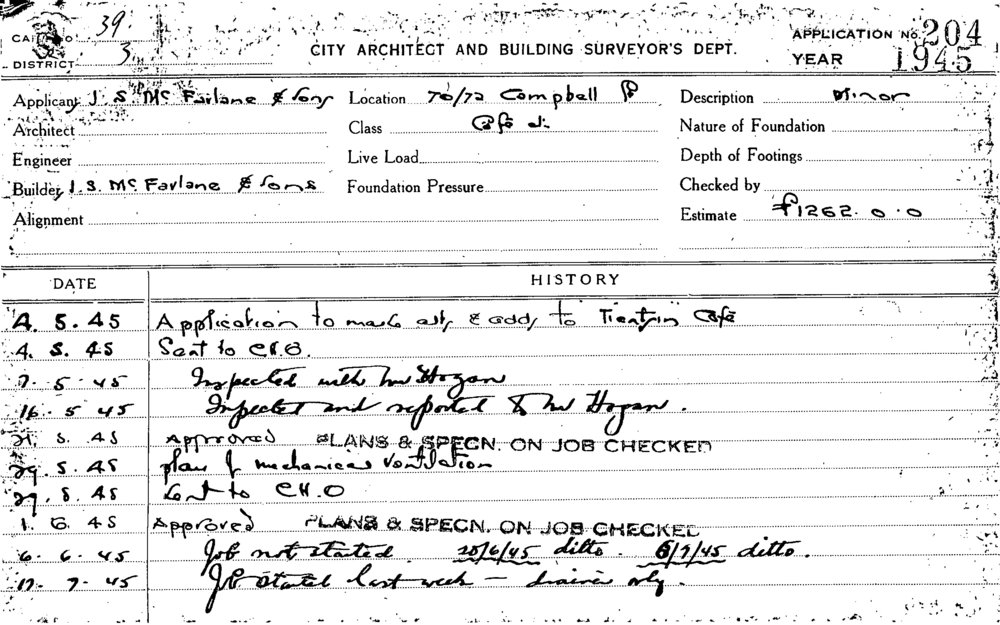 39
3
DISTRICT
CITY ARCHITECT AND BUILDING SURVEYOR'S DEPT.
APPLICATION No. 204
YEAR 1945
Applicant J. S. McFarlane & Sons
Location 70/72 Campbell
Description Minor
Architect
Class Café
Nature of Foundation
Engineer
Live Load
Depth of Footings
Builder J. S. McFarlane & Sons
Foundation Pressure
Checked by
Alignment
Estimate £1262. 0. 0
DATE
HISTORY
4. 5. 45 Application to make alts & adds to Tientsin Café
4. 5. 45 Sent to C.H.O.
7. 5. 45 Inspected with Mr Hogan
16. 5. 45 Inspected and reported to Mr Hogan.
21. 5. 45 Approved PLANS & SPECN. ON JOB CHECKED
29. 5. 45 plan of mechanical ventilation
29. 5. 45 Sent to C.H.O
1. 6. 45 Approved PLANS & SPECN. ON JOB CHECKED
6. 6. 45 Job not started. 20/6/45 ditto. 3/7/45 ditto.
17. 7. 45 Job started last week — drains only.